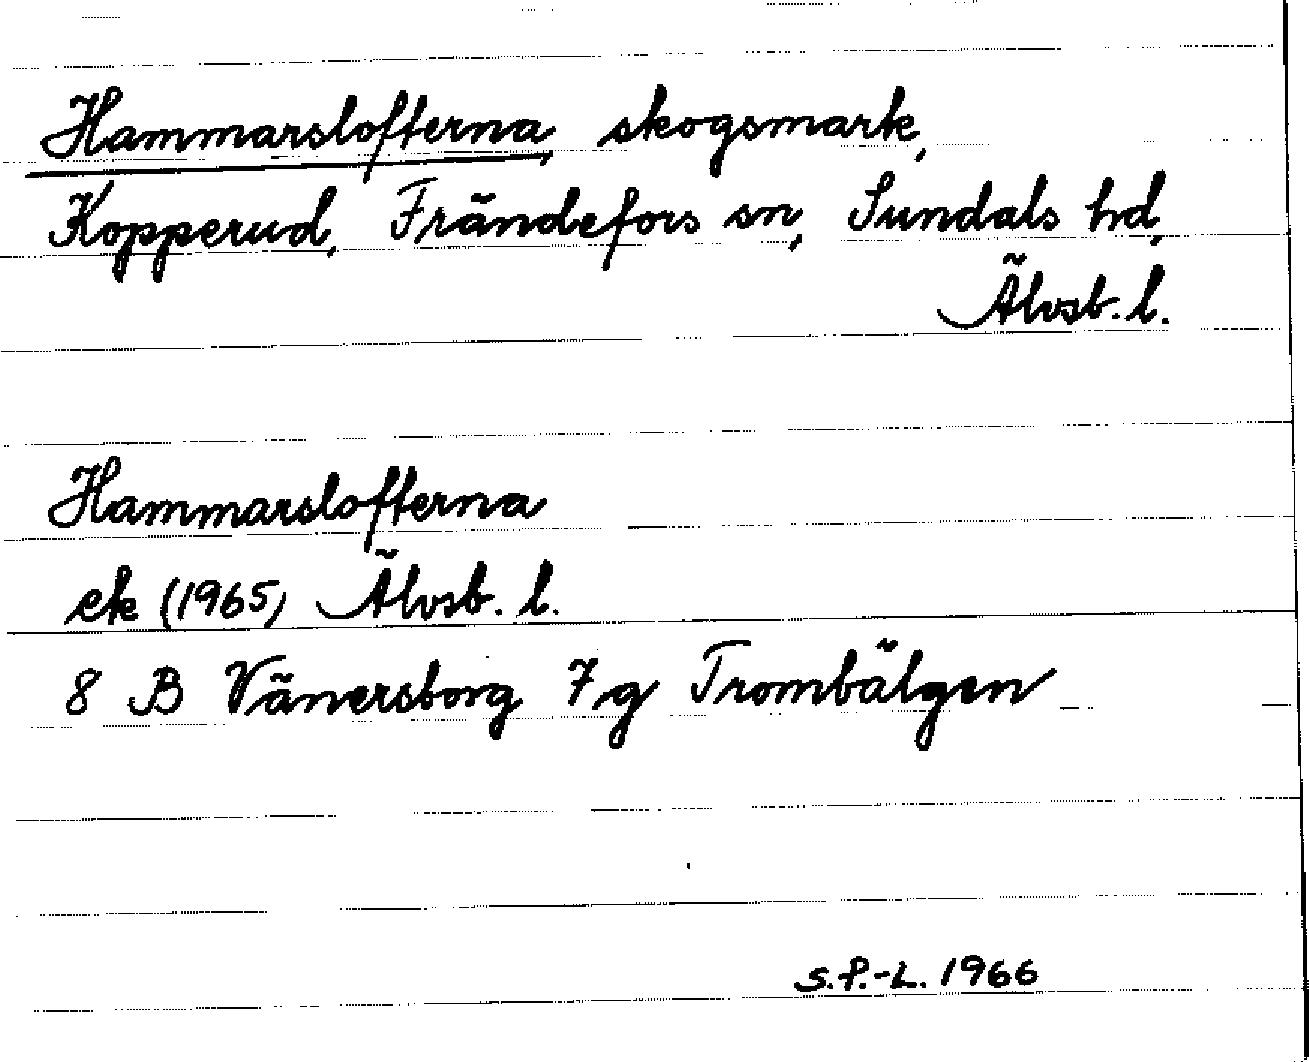 Hammarslofterna, skogsmark,
Kopperud, Frändefors sn, Sundals hd,
Älvsb. l.
Hammarslofterna
ek (1965) Älvsb. l.
8 B Vänersborg 7 g Trombälgen
S.P.-L. 1966